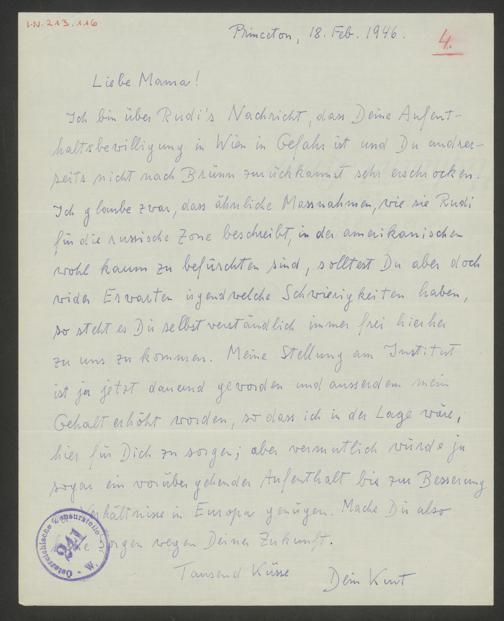 I.N. 213.116
Princeton, 18. Feb. 1946.
4.
Liebe Mama!
Ich bin über Rudi's Nachricht, dass Deine Aufent-
haltsbewilligung in Wien in Gefahr ist und Du andrer-
seits nicht nach Brünn zurückkannst sehr erschrocken.
Ich glaube zwar, dass ähnliche Massnahmen, wie sie Rudi
für die russische Zone beschreibt, in der amerikanischen
wohl kaum zu befürchten sind, solltest Du aber doch
wider Erwarten irgendwelche Schwierigkeiten haben,
so steht es Dir selbstverständlich immer frei hierher
zu uns zu kommen. Meine Stellung am Institut
ist ja jetzt dauernd geworden und ausserdem mein
Gehalt erhöht worden, so dass ich in der Lage wäre,
hier für Dich zu sorgen; aber vermutlich würde ja
sogar ein vorübergehender Aufenthalt bis zur Besserung
Verhältnisse in Europa genügen. Mache Dir also
Sorgen wegen Deiner Zukunft.
Tausend Küsse Dein Kurt
Österreichische Zensurstelle
241
W.